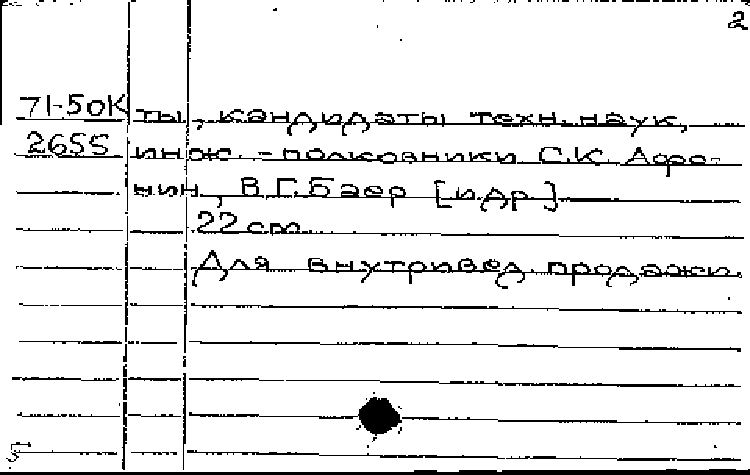 2
71-50К ты, кандидаты техн. наук,
2655 инж.-полковники С.К. Афо-
нин, В.Г. Баер [и др]
22 cm
Для внутривед. продажи.
5